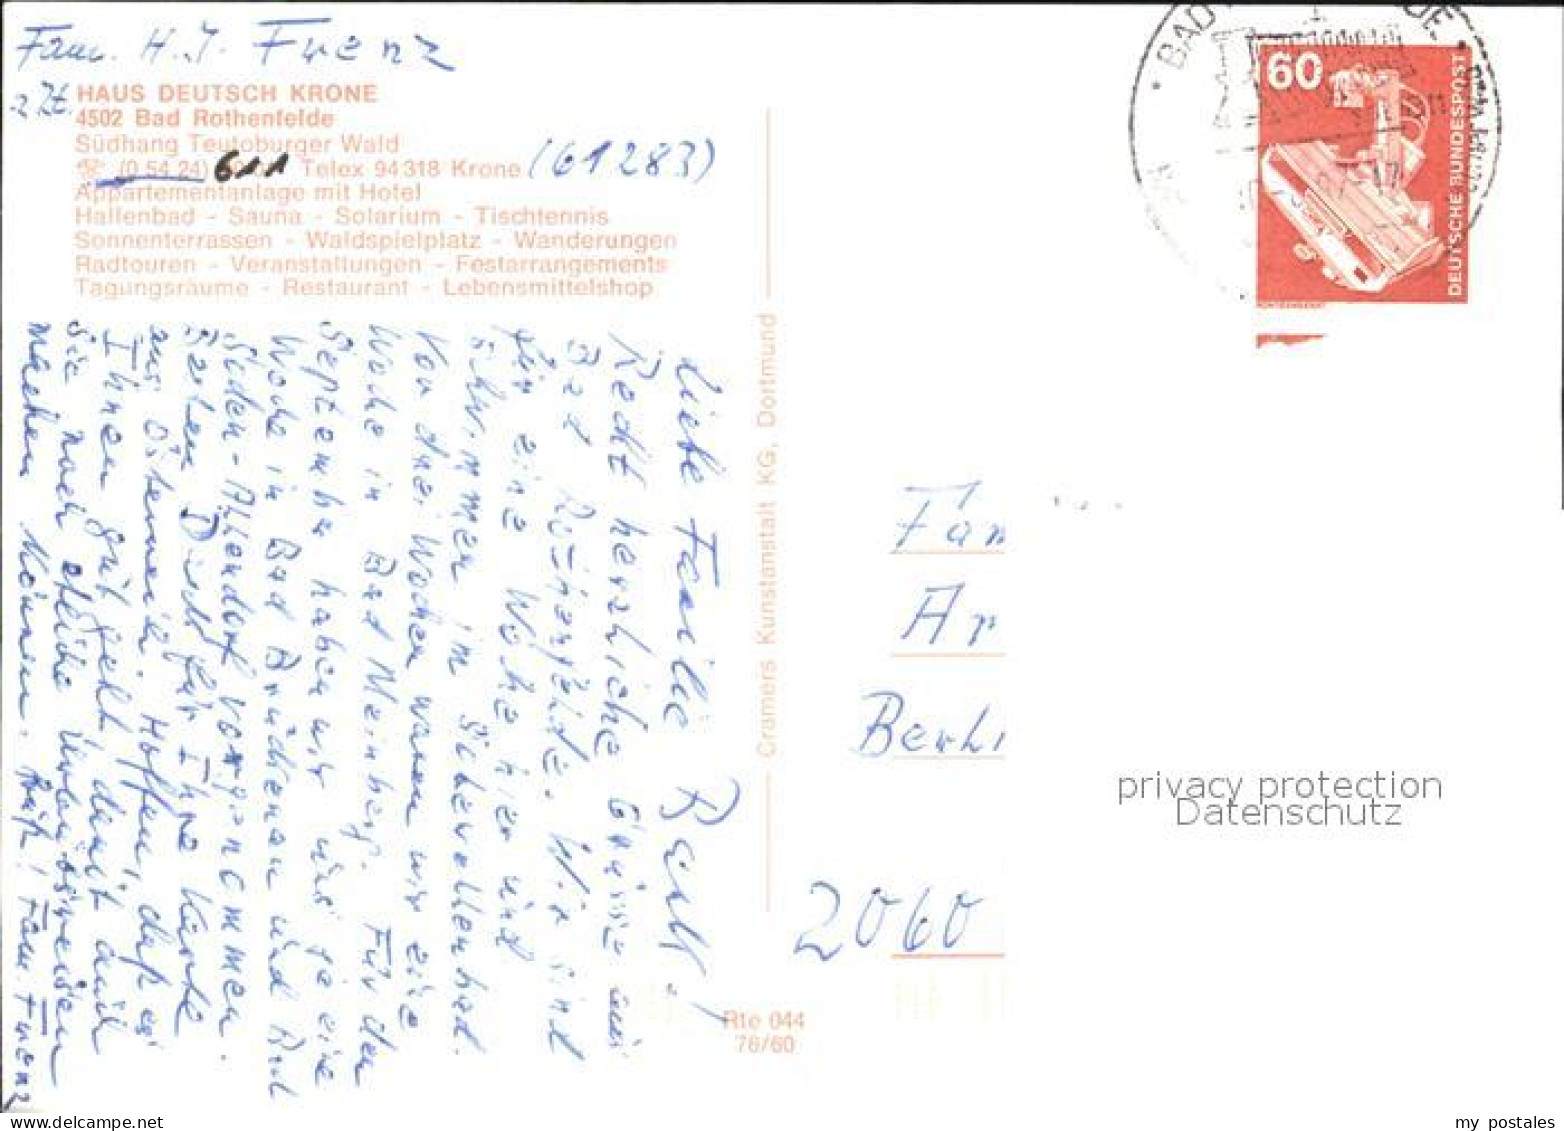 Fam. H. J. Frenz
z Zt. HAUS DEUTSCH KRONE
4502 Bad Rothenfelde
Südhang Teutoburger Wald
☏ (0 54 24) 611 Telex 94 318 Krone (61283)
Appartementanlage mit Hotel
Hallenbad - Sauna - Solarium - Tischtennis
Sonnenterrassen - Waldspielplatz - Wanderungen
Radtouren - Veranstaltungen - Festarrangements
Tagungsräume - Restaurant - Lebensmittelshop
Liebe Familie
Recht herzliche Grüsse aus
Bad Rothenfelde. Wir sind
für eine Woche hier und
schwimmen im Solewellenbad.
Vor drei Wochen waren wir eine
Woche in Bad Meinberg. Für den
September haben wir uns je eine
Woche in Bad Brückenau und Bad
Soden-Allendorf vorgenommen.
Besten Dank für Ihre Karte
aus Österreich. Hoffen, daß es
Ihnen gut geht, damit auch
Sie noch etliche Urlaubsreisen
machen können. Fam Frenz
Cramers Kunstanstalt KG, Dortmund
Rte 044
76/60
60
DEUTSCHE BUNDESPOST
BAD
Fam
Ar
Berli
2060
privacy protection
Datenschutz
www.oldthing.net
my postales